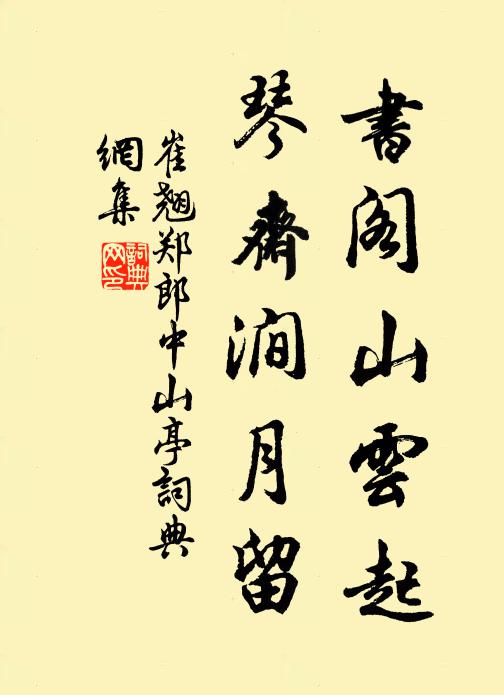 書阁山雲起
琴齋澗月留
崔翘郑郎中山亭詞典
網集
詞典
网印